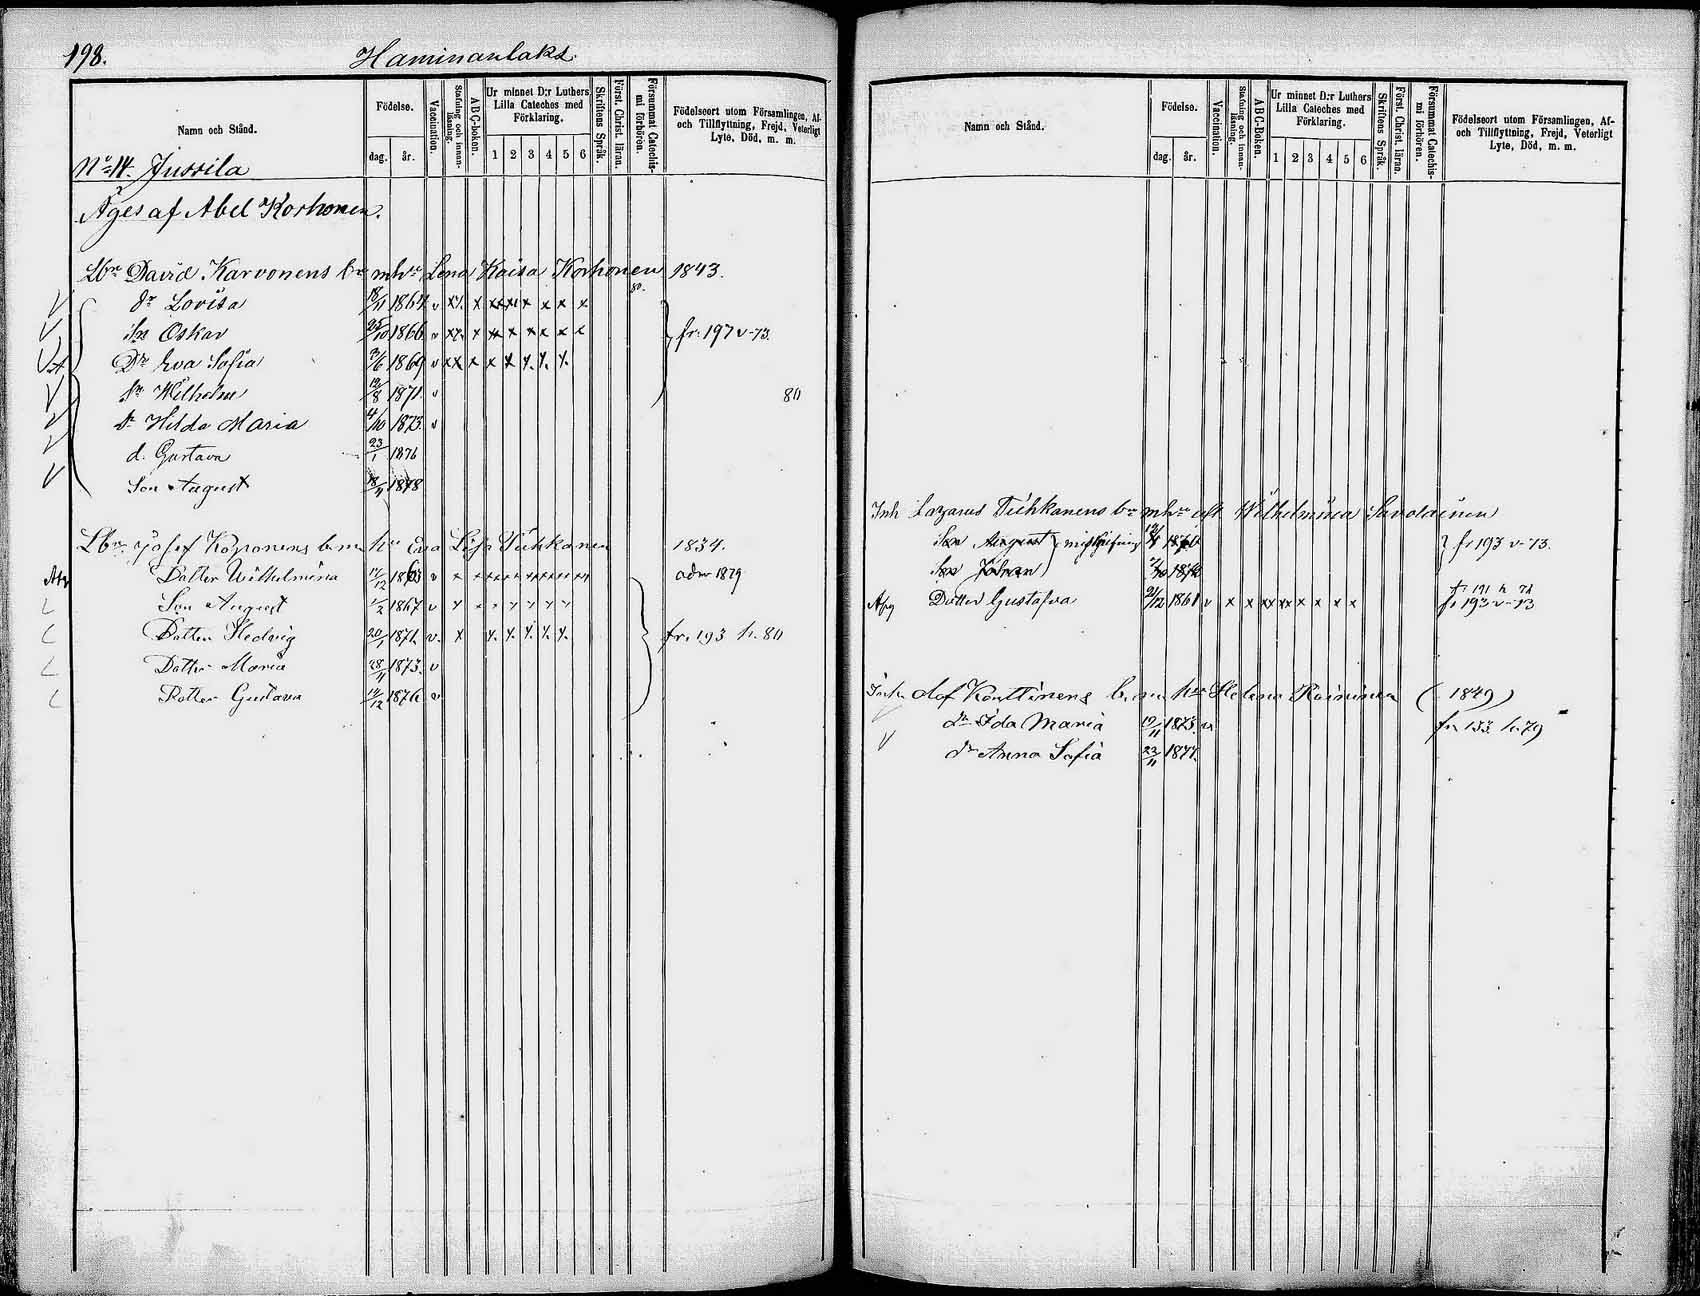 198. Haminanlaks.
Namn och Stånd.
Födelse.
dag. år.
Vaccination.
Stafning och innan-läsning.
ABC-boken.
Ur minnet D:r Luthers Lilla Cateches med Förklaring.
1 2 3 4 5 6
Skriftens Språk.
Först. Christ. läran.
Försummat Catechis-mi förhören.
Födelseort utom Församlingen, Af- och Tillflyttning, Frejd, Veterligt Lyte, Död, m. m.
No 14. Jussila
Äges af Abel Korhonen.
Lbr David Karvonens b m hu Lena Kaisa Korhonen 1843.
80.
dr Lovisa 18/11 1864 v x x x x x x x x x
Sn Oskar 25/10 1866 v x x x x x x x x x fr. 197 v-73.
Dr Eva Sofia 3/6 1869 v x x x x x x x x
Sn Wilhelm 12/8 1871 v 80
dr Hilda Maria 4/10 1873 v
d. Gustava 23/1 1876
Son August 18/11 1878
Lbr Josef Koponens b. m hu Eva Lisa Tiihkanen 1834.
Dotter Wilhelmina 17/12 1863 v x x x x x x x x x adm 1879
Son August 1/2 1867 v x x x x x x x x
Dotter Hedvig 20/1 1871 v x x x x x x fr. 193 h. 80
Dotter Maria 28/11 1873 v
Dotter Gustava 14/12 1876 v
Namn och Stånd.
Födelse.
dag. år.
Vaccination.
Stafning och innan-läsning.
ABC-Boken.
Ur minnet D:r Luthers Lilla Cateches med Förklaring.
1 2 3 4 5 6
Skriftens Språk.
Först. Christ. läran.
Försummat Catechis-mi förhören.
Födelseort utom Församlingen, Af- och Tillflyttning, Frejd, Veterligt Lyte, Död, m. m.
Inh Lazarus Tiihkanens b m hu Wilhelmina Savolainen
Son August fr 193 v-73.
Son Johan
fr 191 h 78
Dotter Gustafva 21/12 1861 v x x x x x x x x x fr 193 v-73
Olof Konttinens b. m hu Helena Roininen (1849)
dr Ida Maria 19/11 1873 v fr 133 h. 79
dr Anna Sofia 23/11 1877.